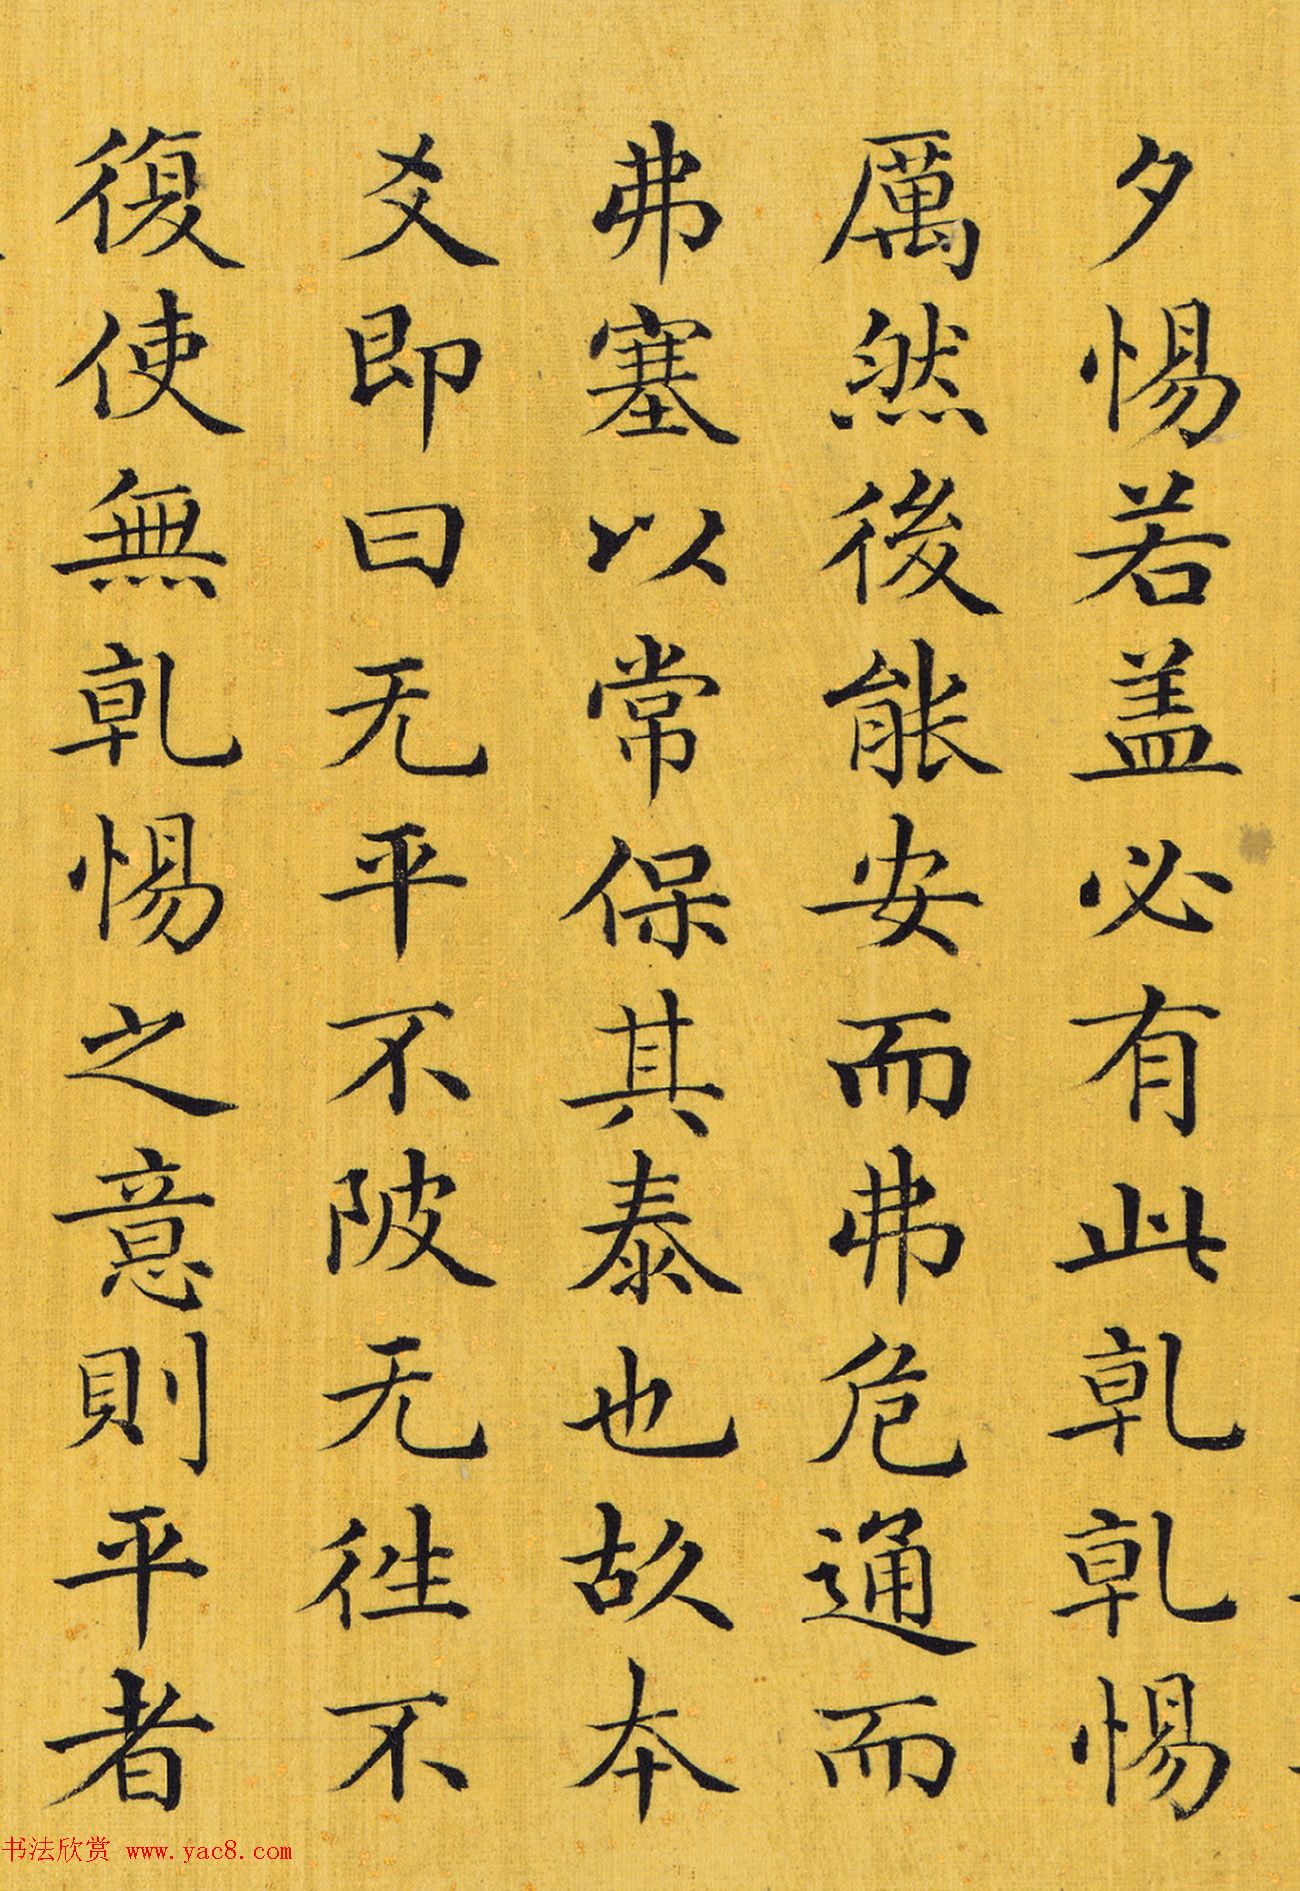 夕惕若盖必有此乹乹惕
厲然後能安而弗危通而
弗塞以常保其泰也故本
爻即曰无平不陂无往不
復使無乹惕之意則平者
书法欣赏 www.yac8.com